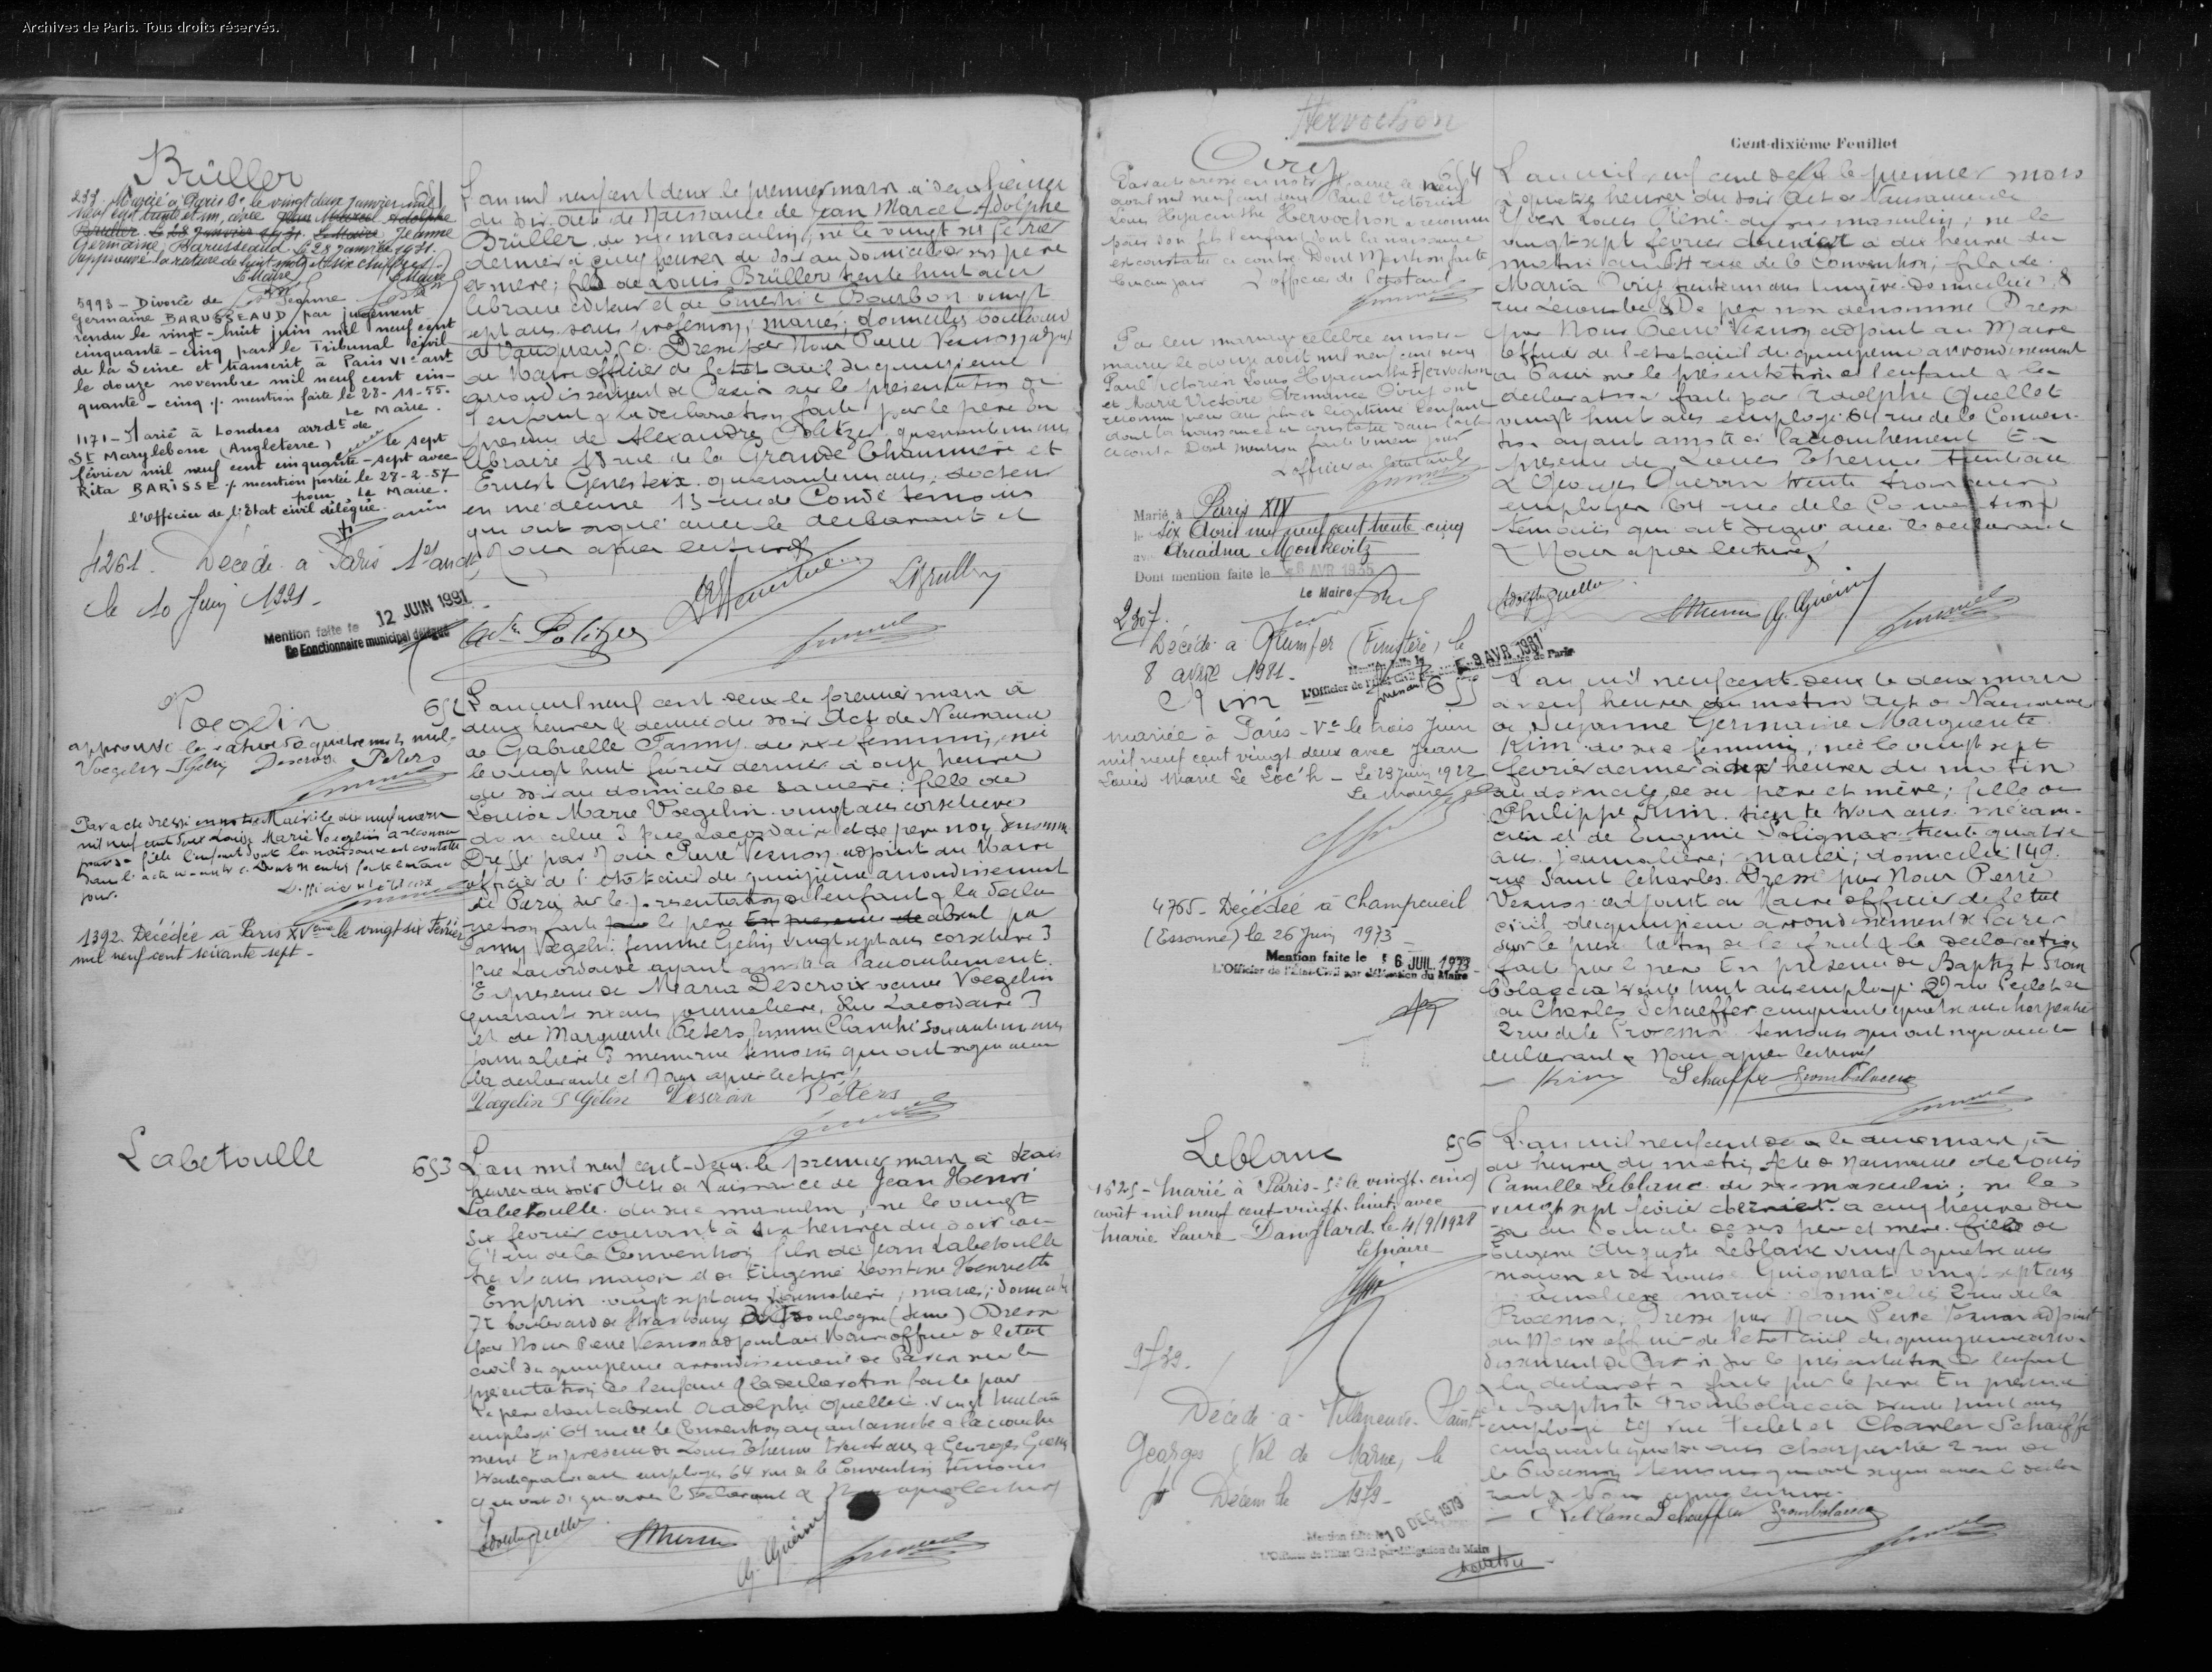 Archives de Paris. Tous droits réservés.
Brüller
651
233. Marié à Paris le vingt deux janvier mil
neuf cent trente et un, avec Jean Marcel Adolphe
Brüller. le 28 janvier 1931. Le Maire Jeanne
Germaine Barusseaud. le 28 janvier 1931.
Approuvé la rature de huit mots et six chiffres.
Le Maire
Le Maire
5993 - Divorcé de Jeanne
Germaine BARUSSEAUD par jugement
rendu le vingt-huit juin mil neuf cent
cinquante-cinq par le Tribunal civil
de la Seine et transcrit à Paris VIe arrt
le douze novembre mil neuf cent cin-
quante-cinq ./. mention faite le 28-11-55.
Le Maire.
1171 - Marié à Londres arrdt de
St Marylebone (Angleterre) le sept
février mil neuf cent cinquante-sept avec
Rita BARISSE ./. mention portée le 28-2-57
pour Le Maire.
l'officier de l'Etat civil délégué.
4261. Décédé à Paris 1er arrdt
le 10 Juin 1991 -
Mention faite le 12 JUIN 1991
Le Fonctionnaire municipal délégué
L'an mil neuf cent deux le premier mars à deux heures
du soir acte de Naissance de Jean Marcel Adolphe
Brüller du sexe masculin, né le vingt six février
dernier à cinq heures du soir au domicile de ses père
et mère; fils de Louis Brüller trente huit ans
libraire éditeur et de Ernestine Bourbon vingt
sept ans sans profession; mariés; domiciliés boulevard
de Vaugirard 50. Dressé par Nous Pierre Vernon adjoint
au Maire officier de l'état civil du quinzième
arrondissement de Paris sur la présentation de
l'enfant & la déclaration faite par le père en
présence de Alexandre Politzer quarante ans
libraire 18 rue de la Grande Chaumière et
Ernest Genesteix quarante ans, docteur
en médecine 13 rue de Condé témoins
qui ont signé avec le déclarant et
Nous après lecture
LBruller
Politzer
Voegelin
652
approuvé la rature de quatre mots nuls
Voegelin S Gélin Descroix Peters
Par acte dressé en notre Mairie le neuf mars
mil neuf cent deux Louise Marie Voegelin a reconnu
pour sa fille l'enfant dont la naissance est constatée
dans l'acte ci-contre. Dont Mention faite le même
jour.
L'officier de l'état civil
1392. Décédée à Paris XVème le vingt six Février
mil neuf cent soixante sept -
L'an mil neuf cent deux le premier mars à
deux heures & demie du soir Acte de Naissance
de Gabrielle Fanny du sexe féminin, née
le vingt huit février dernier à onze heures
du soir au domicile de sa mère; fille de
Louise Marie Voegelin vingt ans corsetière
domiciliée 3 rue Lacordaire et de père non dénommé
Dressé par Nous Pierre Vernon adjoint au Maire
officier de l'état civil du quinzième arrondissement
de Paris sur la présentation de l'enfant & la décla
ration faite par le père En présence de absent par
Fanny Voegelin femme Gélin vingt sept ans corsetière 3
rue Lacordaire ayant assisté à l'accouchement.
En présence de Maria Descroix veuve Voegelin
quarante six ans journalière, rue Lacordaire 3
et de Marguerite Peters femme soixante ans
journalière témoins qui ont signé avec
la déclarante et Nous après lecture
Voegelin S Gélin Descroix Péters
Labetoulle
653
L'an mil neuf cent deux le premier mars à trois
heures du soir Acte de Naissance de Jean Henri
Labetoulle du sexe masculin, né le vingt
six février courant à six heures du soir au
64 rue de la Convention fils de Jean Labetoulle
ans maçon et de Eugénie Léontine Henriette
Emprin vingt sept ans journalière, mariés; domiciliés
boulevard de Strasbourg à Boulogne (Seine) Dressé
par Nous Pierre Vernon adjoint au Maire officier de l'état
civil du quinzième arrondissement de Paris sur la
présentation de l'enfant & la déclaration faite par
le père étant absent Adolphe Quellet vingt huit ans
employé 64 rue de la Convention ayant assisté à l'accouche
ment En présence de Louis Therme trente ans & Georges Guérin
trente ans employés 64 rue de la Convention témoins
qui ont signé avec le déclarant & Nous après lecture
AdolpheQuellet Therme G. Guérin
Hervochon
Cent-dixième Feuillet
Oiry
654
Par acte dressé en notre Mairie le neuf
août mil neuf cent deux Paul Victorien
Louis Hyacinthe Hervochon a reconnu
pour son fils l'enfant dont la naissance
est constatée ci contre Dont Mention faite
le même jour L'officier de l'état civil
Par leur mariage célébré en notre
mairie le douze août mil neuf cent deux
Paul Victorien Louis Hyacinthe Hervochon
et Marie Victoire Armance Oiry ont
reconnu pour leur fils et légitimé l'enfant
dont la naissance est constatée dans l'acte
ci contre Dont mention faite le même jour
L'officier de l'état civil
Marié à Paris XIV
le six Avril mil neuf cent trente cinq
avec Ariadna Monkevitz
Dont mention faite le 8 AVR 1935
Le Maire
2307.
Décédé à (Finistère), le
8 avril 1981.
Mention faite le 9 AVR. 1981
L'Officier de l'État Civil
L'an mil neuf cent deux le premier mars
à quatre heures du soir acte de Naissance de
Yven Louis René du sexe masculin, né le
vingt sept février dernier à dix heures du
matin au 64 rue de la Convention; fils de
Maria Oiry ans lingère domiciliée 8
rue Lecourbe & De père non dénommé Dressé
par Nous Pierre Vernon adjoint au Maire
officier de l'état civil du quinzième arrondissement
de Paris sur la présentation de l'enfant & la
déclaration faite par Adolphe Quellet
vingt huit ans employé 64 rue de la Conven-
tion ayant assisté à l'accouchement En
présence de Louis Therme trente ans
& Georges Guérin trente trois ans
employés 64 rue de la Convention
témoins qui ont signé avec le déclarant
& Nous après lecture
AdolpheQuellet Therme G. Guérin
Kirn
655
mariée à Paris - Ve le trois Juin
mil neuf cent vingt deux avec Jean
Louis Marie Le Loc'h - Le 23 Juin 1922
Le Maire
4765 - Décédée à Champcueil
(Essonne) le 26 Juin 1973 -
Mention faite le 6 JUIL. 1973
L'Officier de l'État-Civil par délégation du Maire
L'an mil neuf cent deux le deux mars
à neuf heures du matin Acte de Naissance
de Suzanne Germaine Marguerite
Kirn du sexe féminin, née le vingt sept
février dernier à heures du matin
au domicile de ses père et mère; fille de
Philippe Kirn trente trois ans mécani-
cien et de Eugénie Solignac trente quatre
ans journalière; mariés; domiciliés 149
rue Saint Charles. Dressé par Nous Pierre
Vernon adjoint au Maire officier de l'état
civil du quinzième arrondissement de Paris
sur la présentation de l'enfant & la déclaration
faite par le père En présence de Baptiste Trom
bolaccia trente huit ans employé 29 rue
de Charles Schaeffer cinquante quatre ans charpentier
2 rue de la Procession témoins qui ont signé avec le
déclarant & Nous après lecture
Kirn Schaeffer Trombolaccia
Leblanc
656
1625 - Marié à Paris - 5e le vingt-cinq
août mil neuf cent vingt-huit avec
Marie Laure Danglard. le 4/9/1928
Le Maire
9729.
Décédé à Villeneuve-Saint-
Georges (Val de Marne) le
Décembre 1979 -
Mention faite le 10 DEC. 1979
L'Officier de l'État Civil par délégation du Maire
L'an mil neuf cent deux le deux mars à
heures du matin Acte de Naissance de Louis
Camille Leblanc du sexe masculin; né le
vingt sept février dernier à cinq heures du
au domicile de ses père et mère. fils de
Eugène Auguste Leblanc vingt quatre ans
maçon et de Louise Guignerat vingt sept ans
journalière mariés domiciliés 2 rue de la
Procession; Dressé par Nous Pierre Vernon adjoint
au Maire officier de l'état civil du quinzième arron-
dissement de Paris sur la présentation de l'enfant
& la déclaration faite par le père En présence
de Baptiste Trombolaccia trente huit ans
employé 29 rue et Charles Schaeffer
cinquante quatre ans charpentier 2 rue de
la Procession témoins qui ont signé avec le décla
rant & Nous après lecture.
Leblanc Schaeffer Trombolaccia